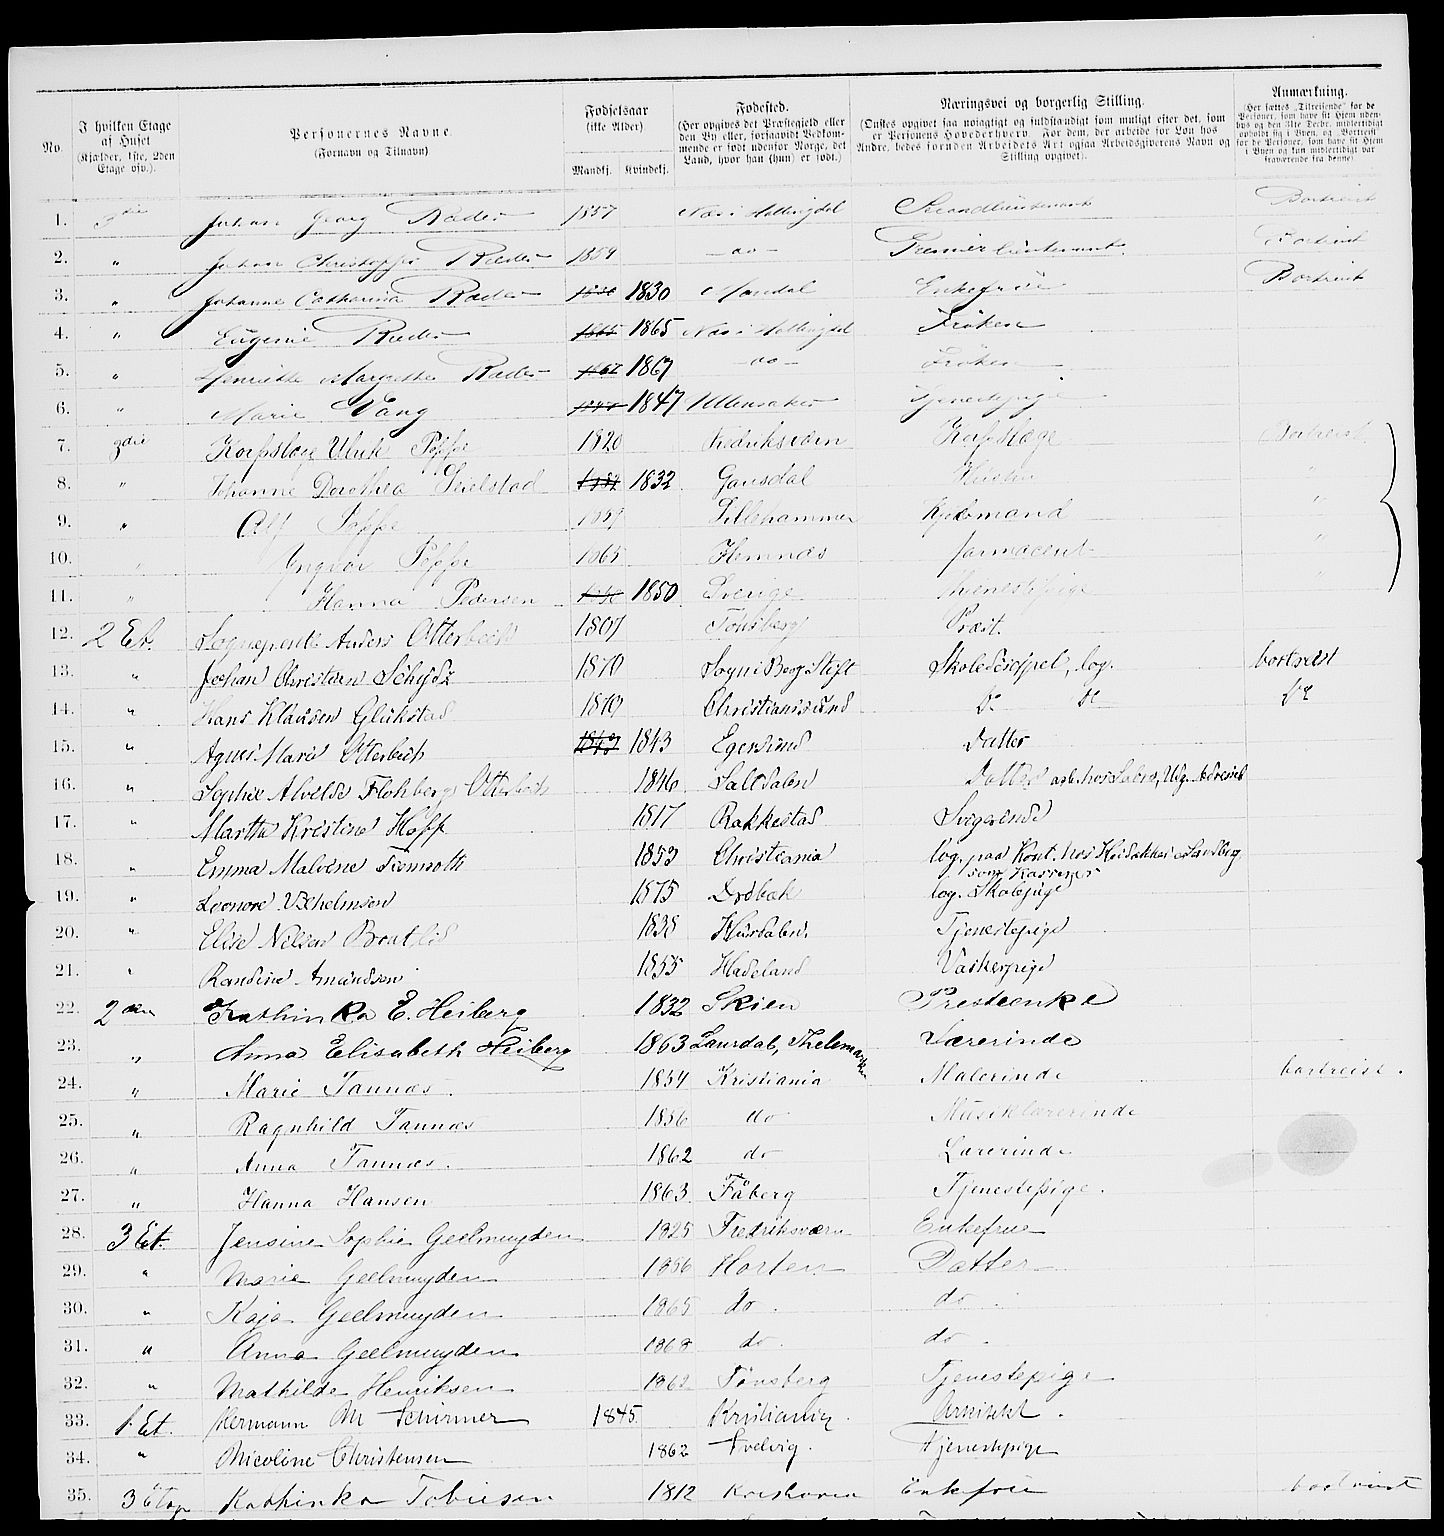 No.
I hvilken Etage af Huset (Kjælder, 1ste, 2den Etage osv.).
Personernes Navne. (Fornavn og Tilnavn)
Fødselsaar (ikke Alder) Mandkj. Kvindekj.
Fødested. (Her opgives det Præstegjeld eller den By eller, forsaavidt Vedkommende er født udenfor Norge, det Land, hvor han (hun) er født.)
Næringsvei og borgerlig Stilling. (Ønstes opgivet saa nøiagtigt og fuldstændigt som muligt efter det, som er Personens Hovederhverv. For dem, der arbeide for Løn hos Andre, bedes foruden Arbeidets Art ogsaa Arbeidsgiverens Navn og Stilling opgivet).
Anmærkning. (Her sættes „Tilreisende" for de Personer, som have sit Hjem udenbys og den 31te Decbr. midlertidigt opholdt sig i Byen, og „Bortreist" for de Personer, som have sit Hjem i Byen og kun midlertidigt var fraværende fra denne).
1. 3die Johan Georg Ræder 1857 Næs i Hallingdal Secondlieutenant Bortreist
2. " Johan Christopher Ræder 1859 do Premierlieutenant. Bortreist
3. " Johanne Catharina Ræder 1830 1830 Mandal Enkefrue Bortreist
4. " Eugenie Ræder 1865 1865 Næs i Hallingdal Frøken
5. " Henriette Margrethe Ræder 1867 1867 do Frøken
6. " Marie Vang 1847 1847 Ullensaker Tjenestepige
7. 3die Korpslæge Ulrik Poppe 1820 Fredriksværn Korpslæge Bortreist
8. " Johanne Dorothea Seielstad 1832 1832 Gausdal Hustru "
9. " Alf Poppe 1857 Lillehammer Kjøbmand "
10. " Yngvar Poppe 1865 Hemnæs farmaceut "
11. " Hanna Pedersen 1850 1850 Sverige tjenestepige "
12. 2 Et. Sogneprest Anders Otterbech 1807 Tønsberg Præst.
13. " Johan Christian Schydz 1870 Sogn i Berg Stift Skoledicipel, log. bortreist
14. " Hans Klausen Glükstad 1870 Christianssund Do Do Do
15. " Agnes Marie Otterbech 1843 1843 Egersund Datter
16. " Sophie Alvilde Flohberg Otterbech 1846 Saltdalen Datter
17. " Martha Kristine Hoff 1817 Rakkestad Svigerinde
18. " Emma Malvine 1853 Christiania log. paa Kont. hos
som Kasserer
19. " Leonore Vilhelmsen 1875 Drøbak log. Skolepige
20. " Elise Nilsen 1838 Hurdalen. Tjenestepige
21. " Randine Amundsen 1855 Hadeland Vaskerpige
22. 2den Kathinka E. Heiberg 1832 Skien Presteenke
23. " Anna Elisabeth Heiberg 1863 Laurdal, Thelemarken Lærerinde
24. " Marie Tannæs. 1854 Kristiania Malerinde bortreist.
25. " Ragnhild Tannæs 1856 do Musiklærerinde
26. " Anna Tannæs. 1862 do Lærerinde
27. " Hanna Hansen 1863. Fåberg Tjenestepige.
28. 3 Et. Jensine Sophie Geelmuyden 1825 Fredriksværn Enkefrue
29. " Marie Geelmuyden 1856 Horten Datter
30. " Kaja Geelmuyden 1865 do. do.
31. " Anna Geelmuyden 1868 do. do.
32. " Mathilde Henriksen 1862 Tønsberg Tjenestepige
33. 1 Et. Hermann M Schirmer 1845. Kristiania. Arkitekt.
34. " Nicoline Christensen 1862 Svelvig. Tjenestepige
35. 3 Etag Kathinka Tobiesen 1812 Enkefrue bortreist